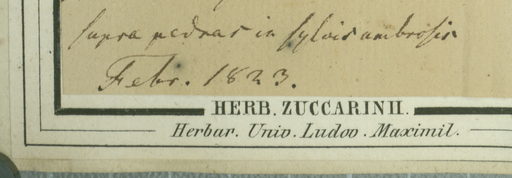 supra pedras in sylvis umbrosis
Febr. 1823.
HERB. ZUCCARINII.
Herbar. Univ. Ludov. Maximil.